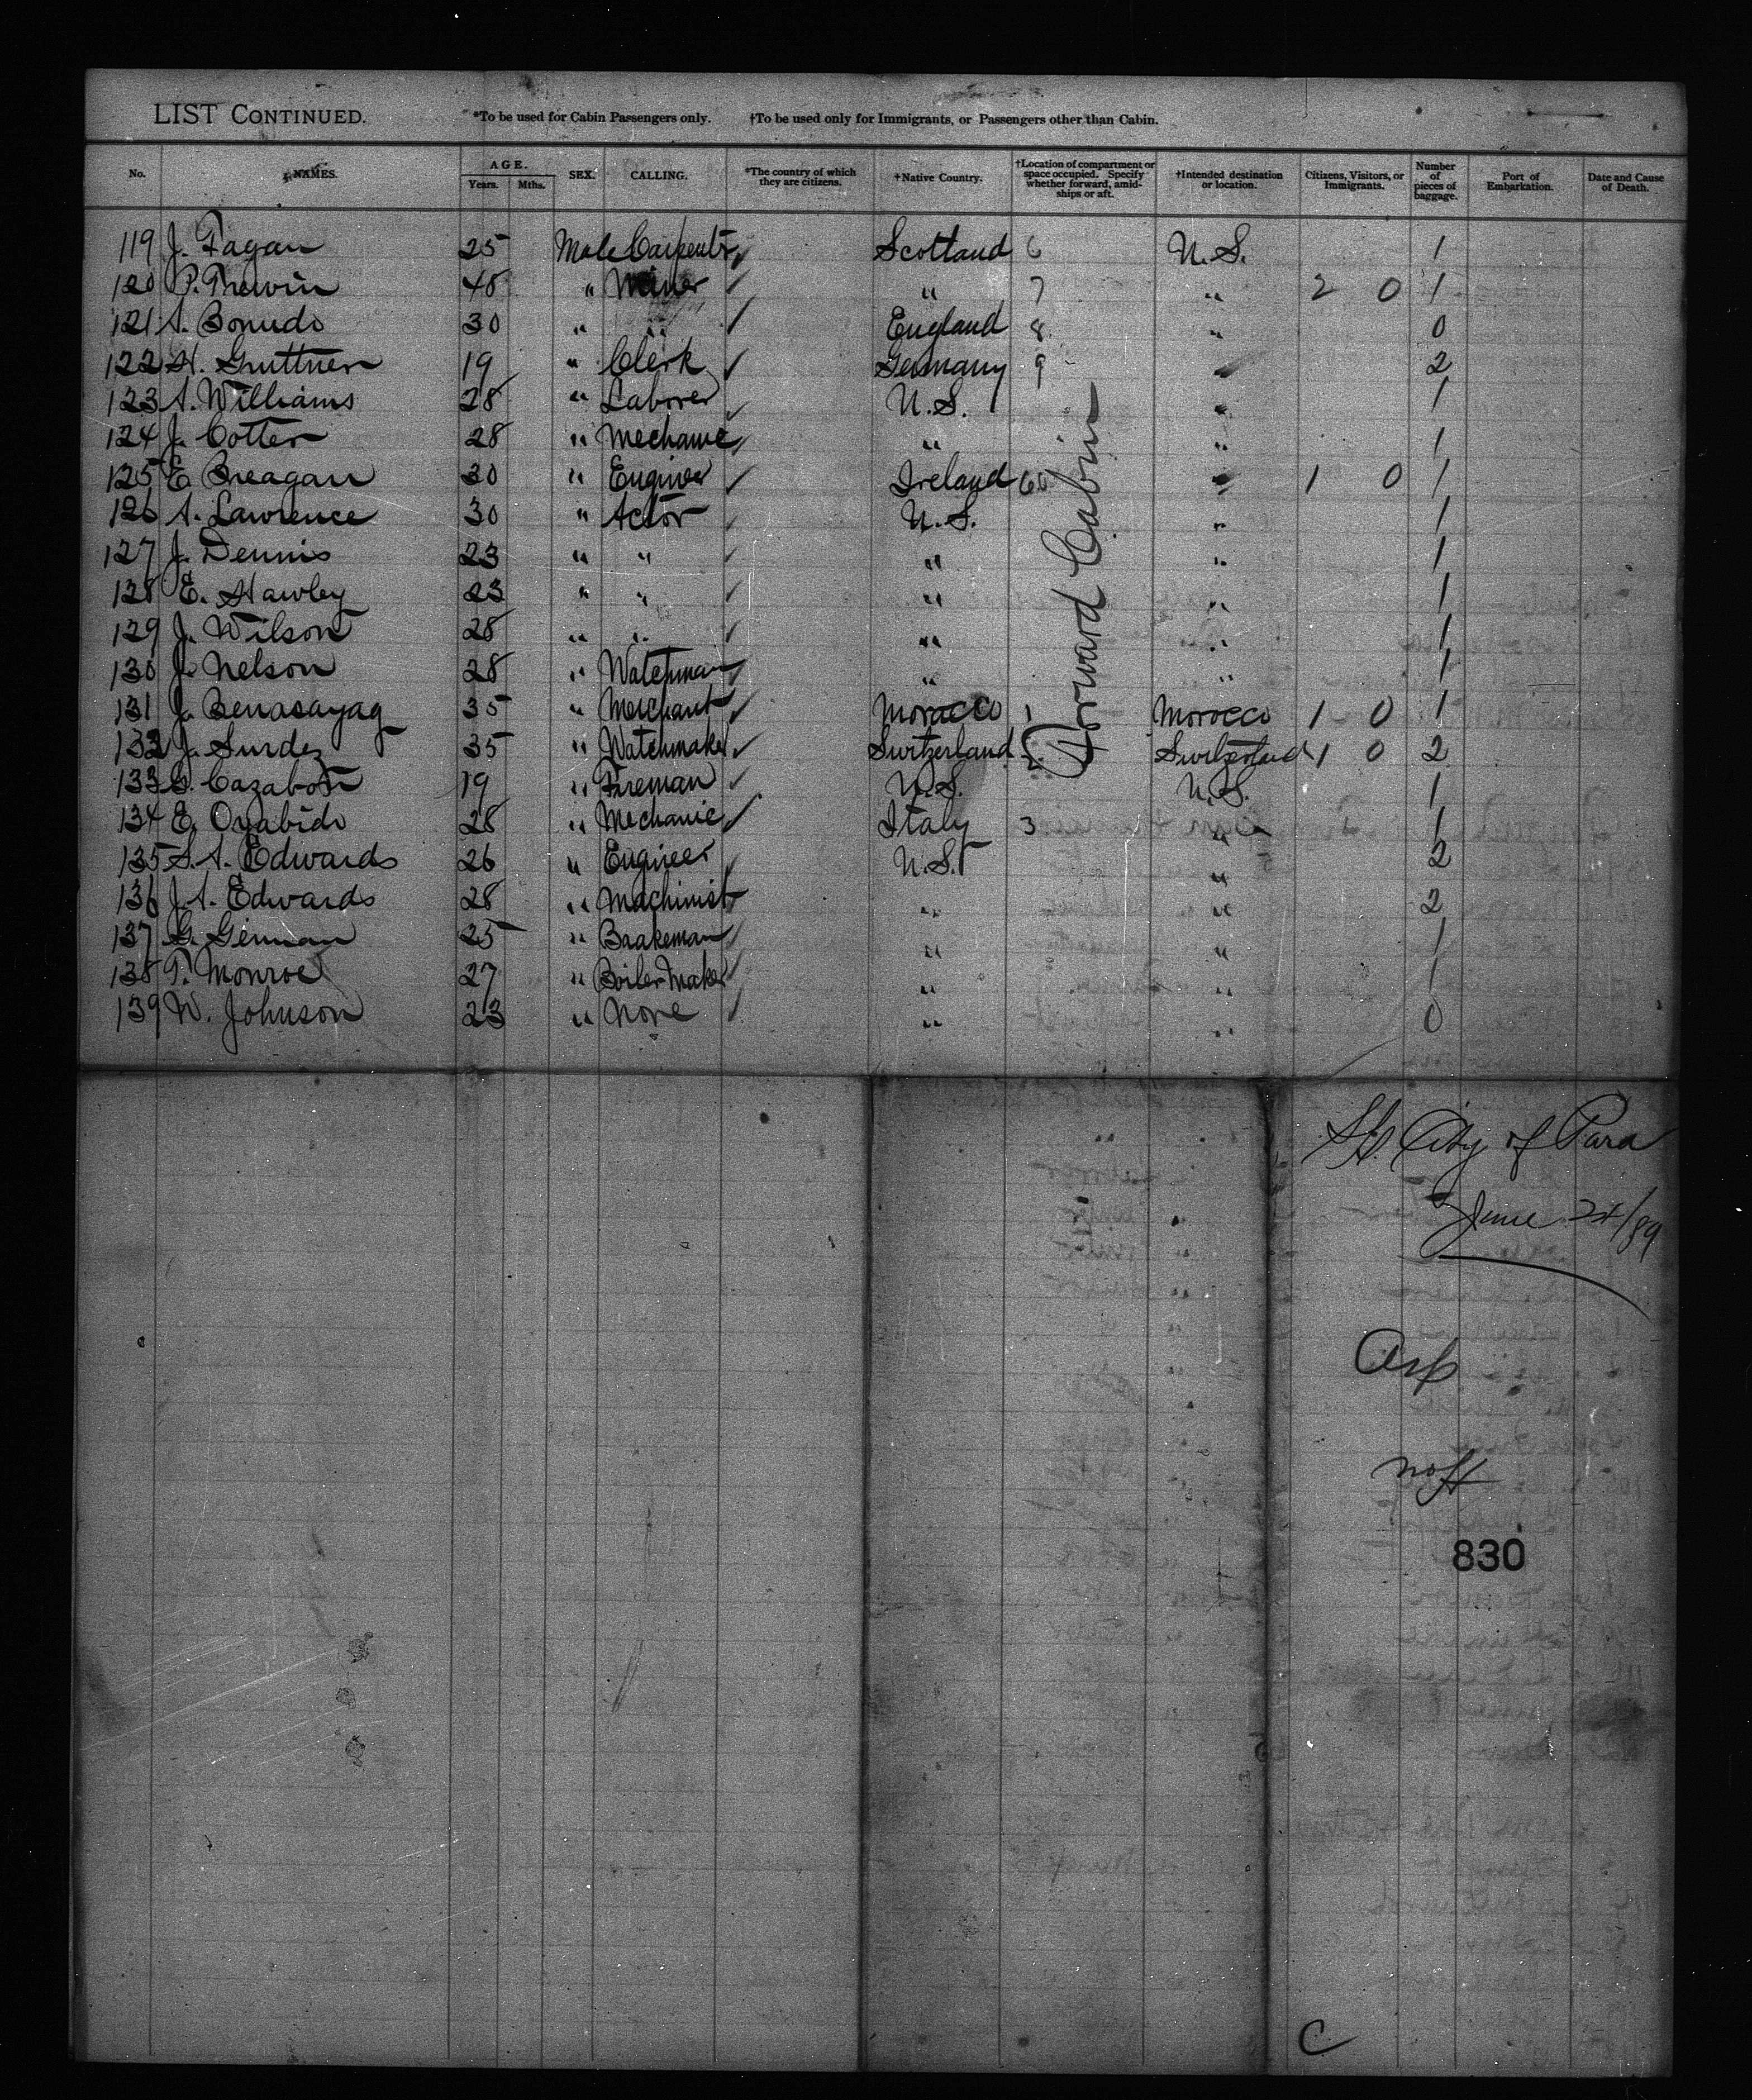 LIST CONTINUED. *To be used for Cabin Passengers only. †To be used only for Immigrants, or Passengers other than Cabin.
No. NAMES. AGE. Years. Mths. SEX. CALLING. *The country of which they are citizens. †Native Country. †Location of compartment or space occupied. Specify whether forward, amidships or aft. †Intended destination or location. Citizens, Visitors, or Immigrants. Number of pieces of baggage. Port of Embarkation. Date and Cause of Death.
119 J. Fagan 25 Male Carpenter Scotland 6 U.S. 1
120 P. Trewin 48 " Miner " 7 " 2 0 1
121 A. Bonudo 30 " " England 8 " 0
122 H. Gruttner 19 " Clerk Germany 9 " 2
123 A. Williams 28 " Laborer U.S. " 1
124 J. Cotter 28 " Mechanic " " 1
125 E. Breagan 30 " Engineer Ireland 60 " 1 0 1
126 A. Lawrence 30 " Actor U.S. " 1
127 J. Dennis 23 " " " " 1
128 E. Hawley 23 " " " " 1
129 J. Wilson 28 " " " " 1
130 J. Nelson 28 " Watchman " " 1
131 J. Benasayag 35 " Merchant Morocco 1 Morocco 1 0 1
132 J. Surdez 35 " Watchmaker Switzerland 2 Switzerland 1 0 2
133 G. Cazabon 19 " Fireman U.S. U.S. 1
134 E. Oyabido 28 " Mechanic Italy 3 " 1
135 S. A. Edwards 26 " Engineer U.S. " 2
136 J. A. Edwards 28 " Machinist " " 2
137 G. German 25 " Baakeman " " 1
138 T. Monroe 27 " Boiler Maker " " 1
139 W. Johnson 23 " None " " 0
Forward Cabin
SS. City of Para
June 24/89
Asp
830
C